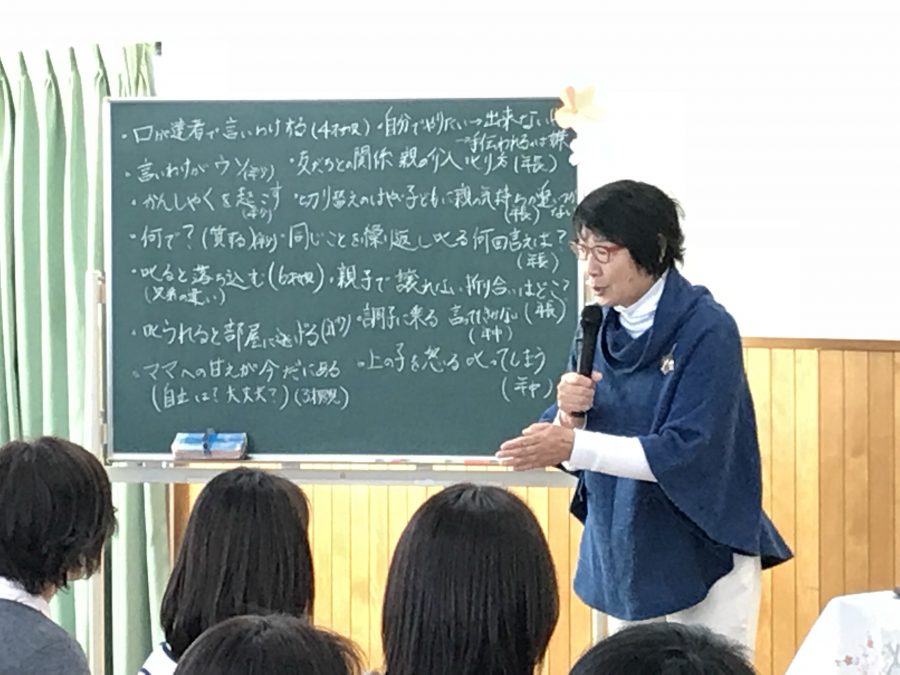 ・口が達者で言いわけする(4才児)
・言いわけがウソ(年少)
・かんしゃくを起こす
(年少)
・何で?(質問)(年少)
・叱ると落ち込む(6才児)
(兄弟の違い)
・叱られると部屋に逃げる
・ママへの甘えが今だにある
(自立は?大丈夫?)(3才児)
・自分でやりたい→出来ない
→手伝われるのは嫌
・友だちとの関係 親の介入 叱り方(年長)
・切り替えのはやい子どもに親の気持ちが追いつかない
(年長)
・同じことを繰り返し叱る何回言えば?
(年長)
・親子で譲れない折り合いはどこ?
(年長)
・調子に乗る 言ってもきかない
(年中)
・上の子を怒る 叱ってしまう
(年中)